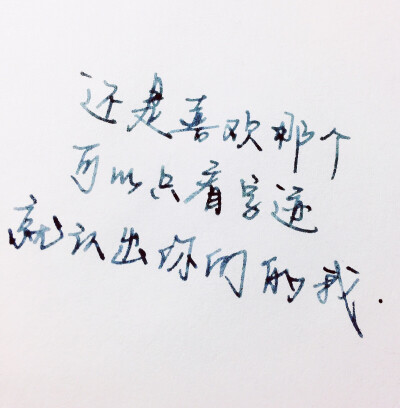 还是喜欢那个
可以只看字迹
就认出你们的我.